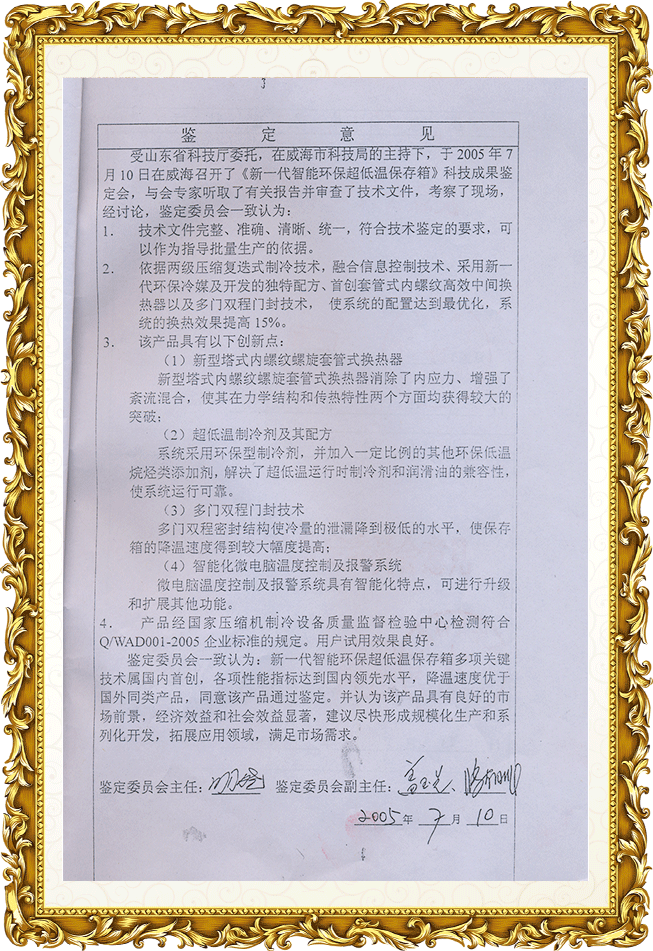 鉴定意见
受山东省科技厅委托，在威海市科技局的主持下，于 2005 年 7
月 10 日在威海召开了《新一代智能环保超低温保存箱》科技成果鉴
定会，与会专家听取了有关报告并审查了技术文件，考察了现场，
经讨论，鉴定委员会一致认为：
1. 技术文件完整、准确、清晰、统一，符合技术鉴定的要求，可
以作为指导批量生产的依据。
2. 依据两级压缩复迭式制冷技术，融合信息控制技术、采用新一
代环保冷媒及开发的独特配方、首创套管式内螺纹高效中间换
热器以及多门双程门封技术， 使系统的配置达到最优化，系
统的换热效果提高 15%。
3. 该产品具有以下创新点：
（1）新型塔式内螺纹螺旋套管式换热器
新型塔式内螺纹螺旋套管式换热器消除了内应力、增强了
紊流混合，使其在力学结构和传热特性两个方面均获得较大的
突破；
（2）超低温制冷剂及其配方
系统采用环保型制冷剂，并加入一定比例的其他环保低温
烷烃类添加剂，解决了超低温运行时制冷剂和润滑油的兼容性，
使系统运行可靠。
（3）多门双程门封技术
多门双程密封结构使冷量的泄漏降到极低的水平，使保存
箱的降温速度得到较大幅度提高；
（4）智能化微电脑温度控制及报警系统
微电脑温度控制及报警系统具有智能化特点，可进行升级
和扩展其他功能。
4. 产品经国家压缩机制冷设备质量监督检验中心检测符合
Q/WAD001-2005 企业标准的规定。用户试用效果良好。
鉴定委员会一致认为：新一代智能环保超低温保存箱多项关键
技术属国内首创，各项性能指标达到国内领先水平，降温速度优于
国外同类产品，同意该产品通过鉴定。并认为该产品具有良好的市
场前景，经济效益和社会效益显著，建议尽快形成规模化生产和系
列化开发，拓展应用领域，满足市场需求。
鉴定委员会主任： 鉴定委员会副主任：
2005年 7 月 10 日